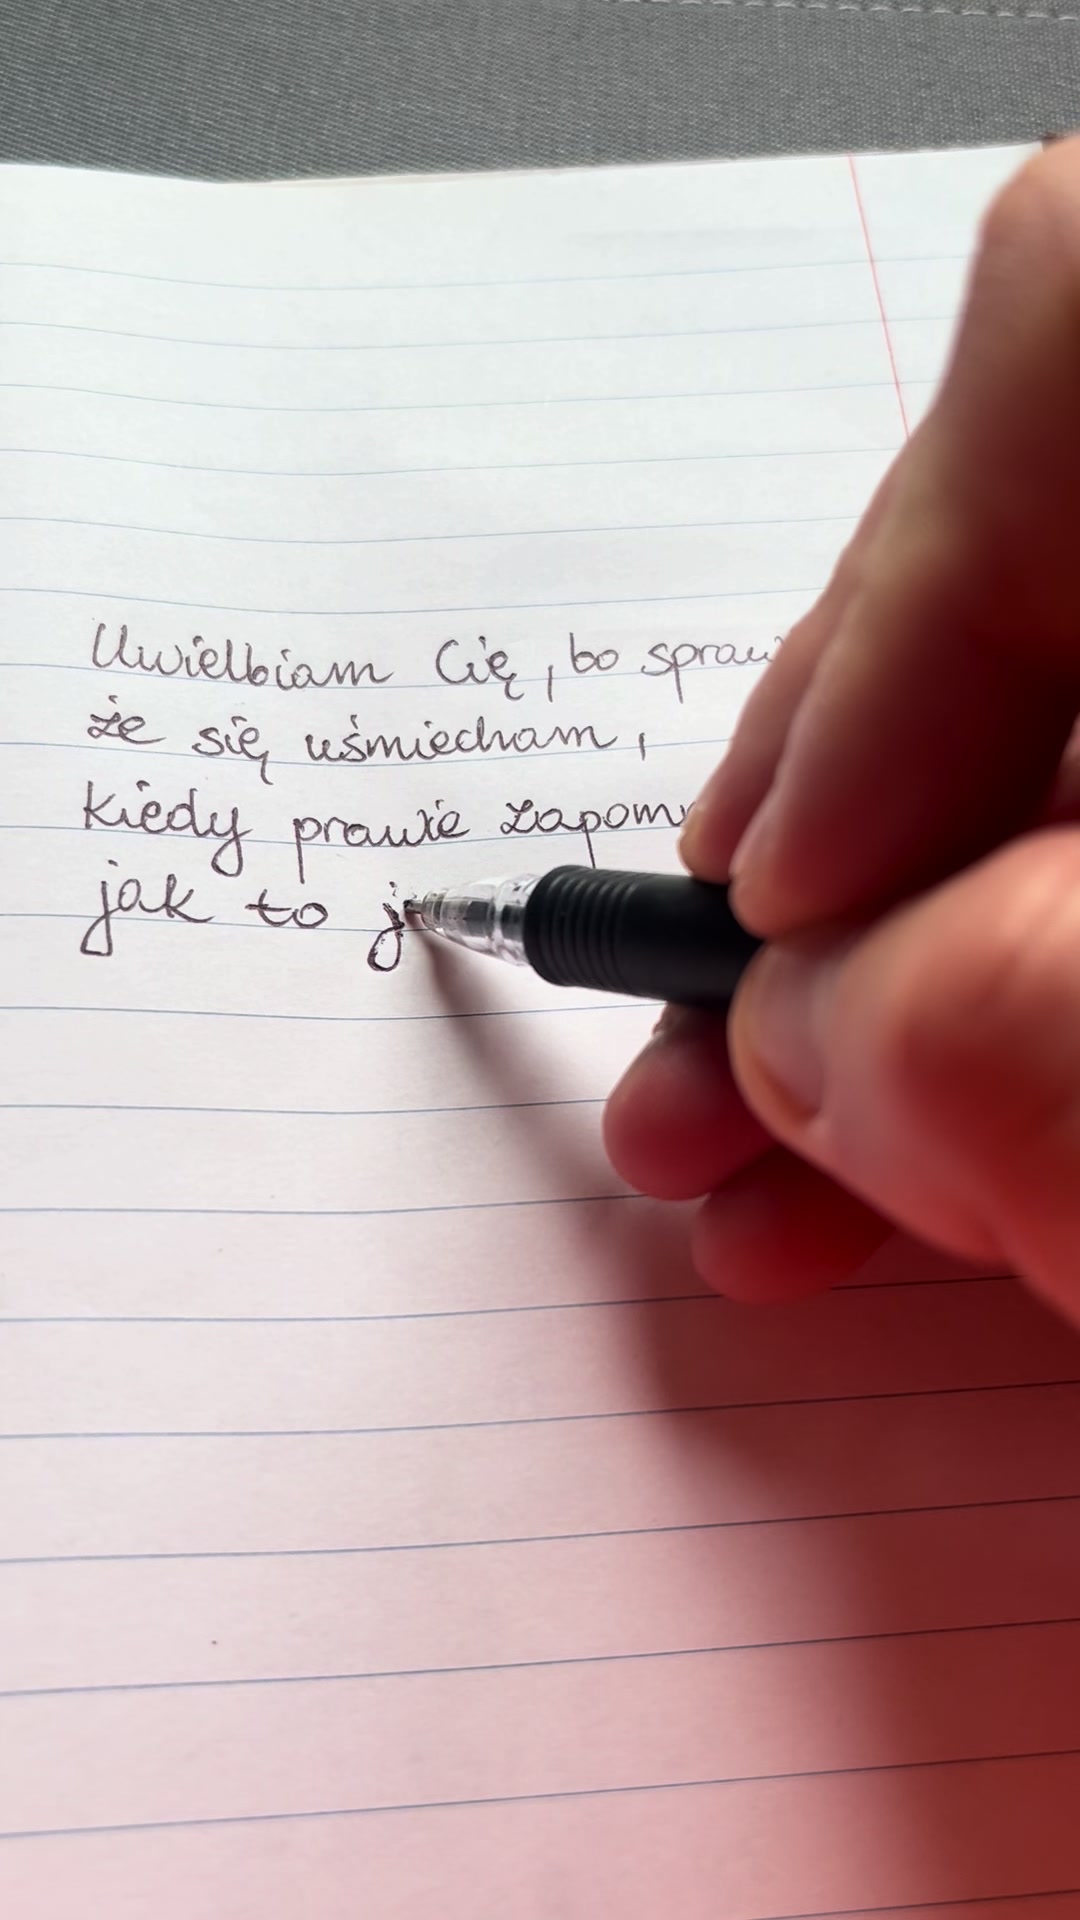 Uwielbiam Cię, bo
że się uśmiecham,
kiedy prawie
jak to